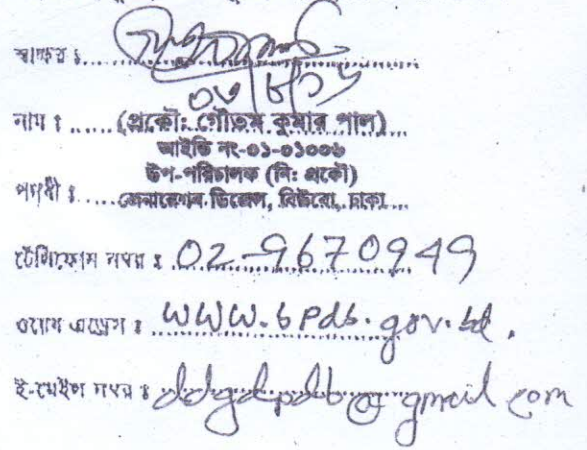 স্বাক্ষর ঃ
০৩/৮/১৬
নাম ঃ (প্রকৌঃ গৌতম কুমার পাল)
আইডি নং-০১-০১০০৬
উপ-পরিচালক (নিঃ প্রকৌ)
পদবী ঃ জেনারেশন ডিজেল, বিউবো, ঢাকা
টেলিফোন নম্বর ঃ 02-9670949
ওয়েব এড্রেস ঃ www.bpdb.gov.bd.
ই-মেইল নম্বর ঃ ddgdpdb@gmail com